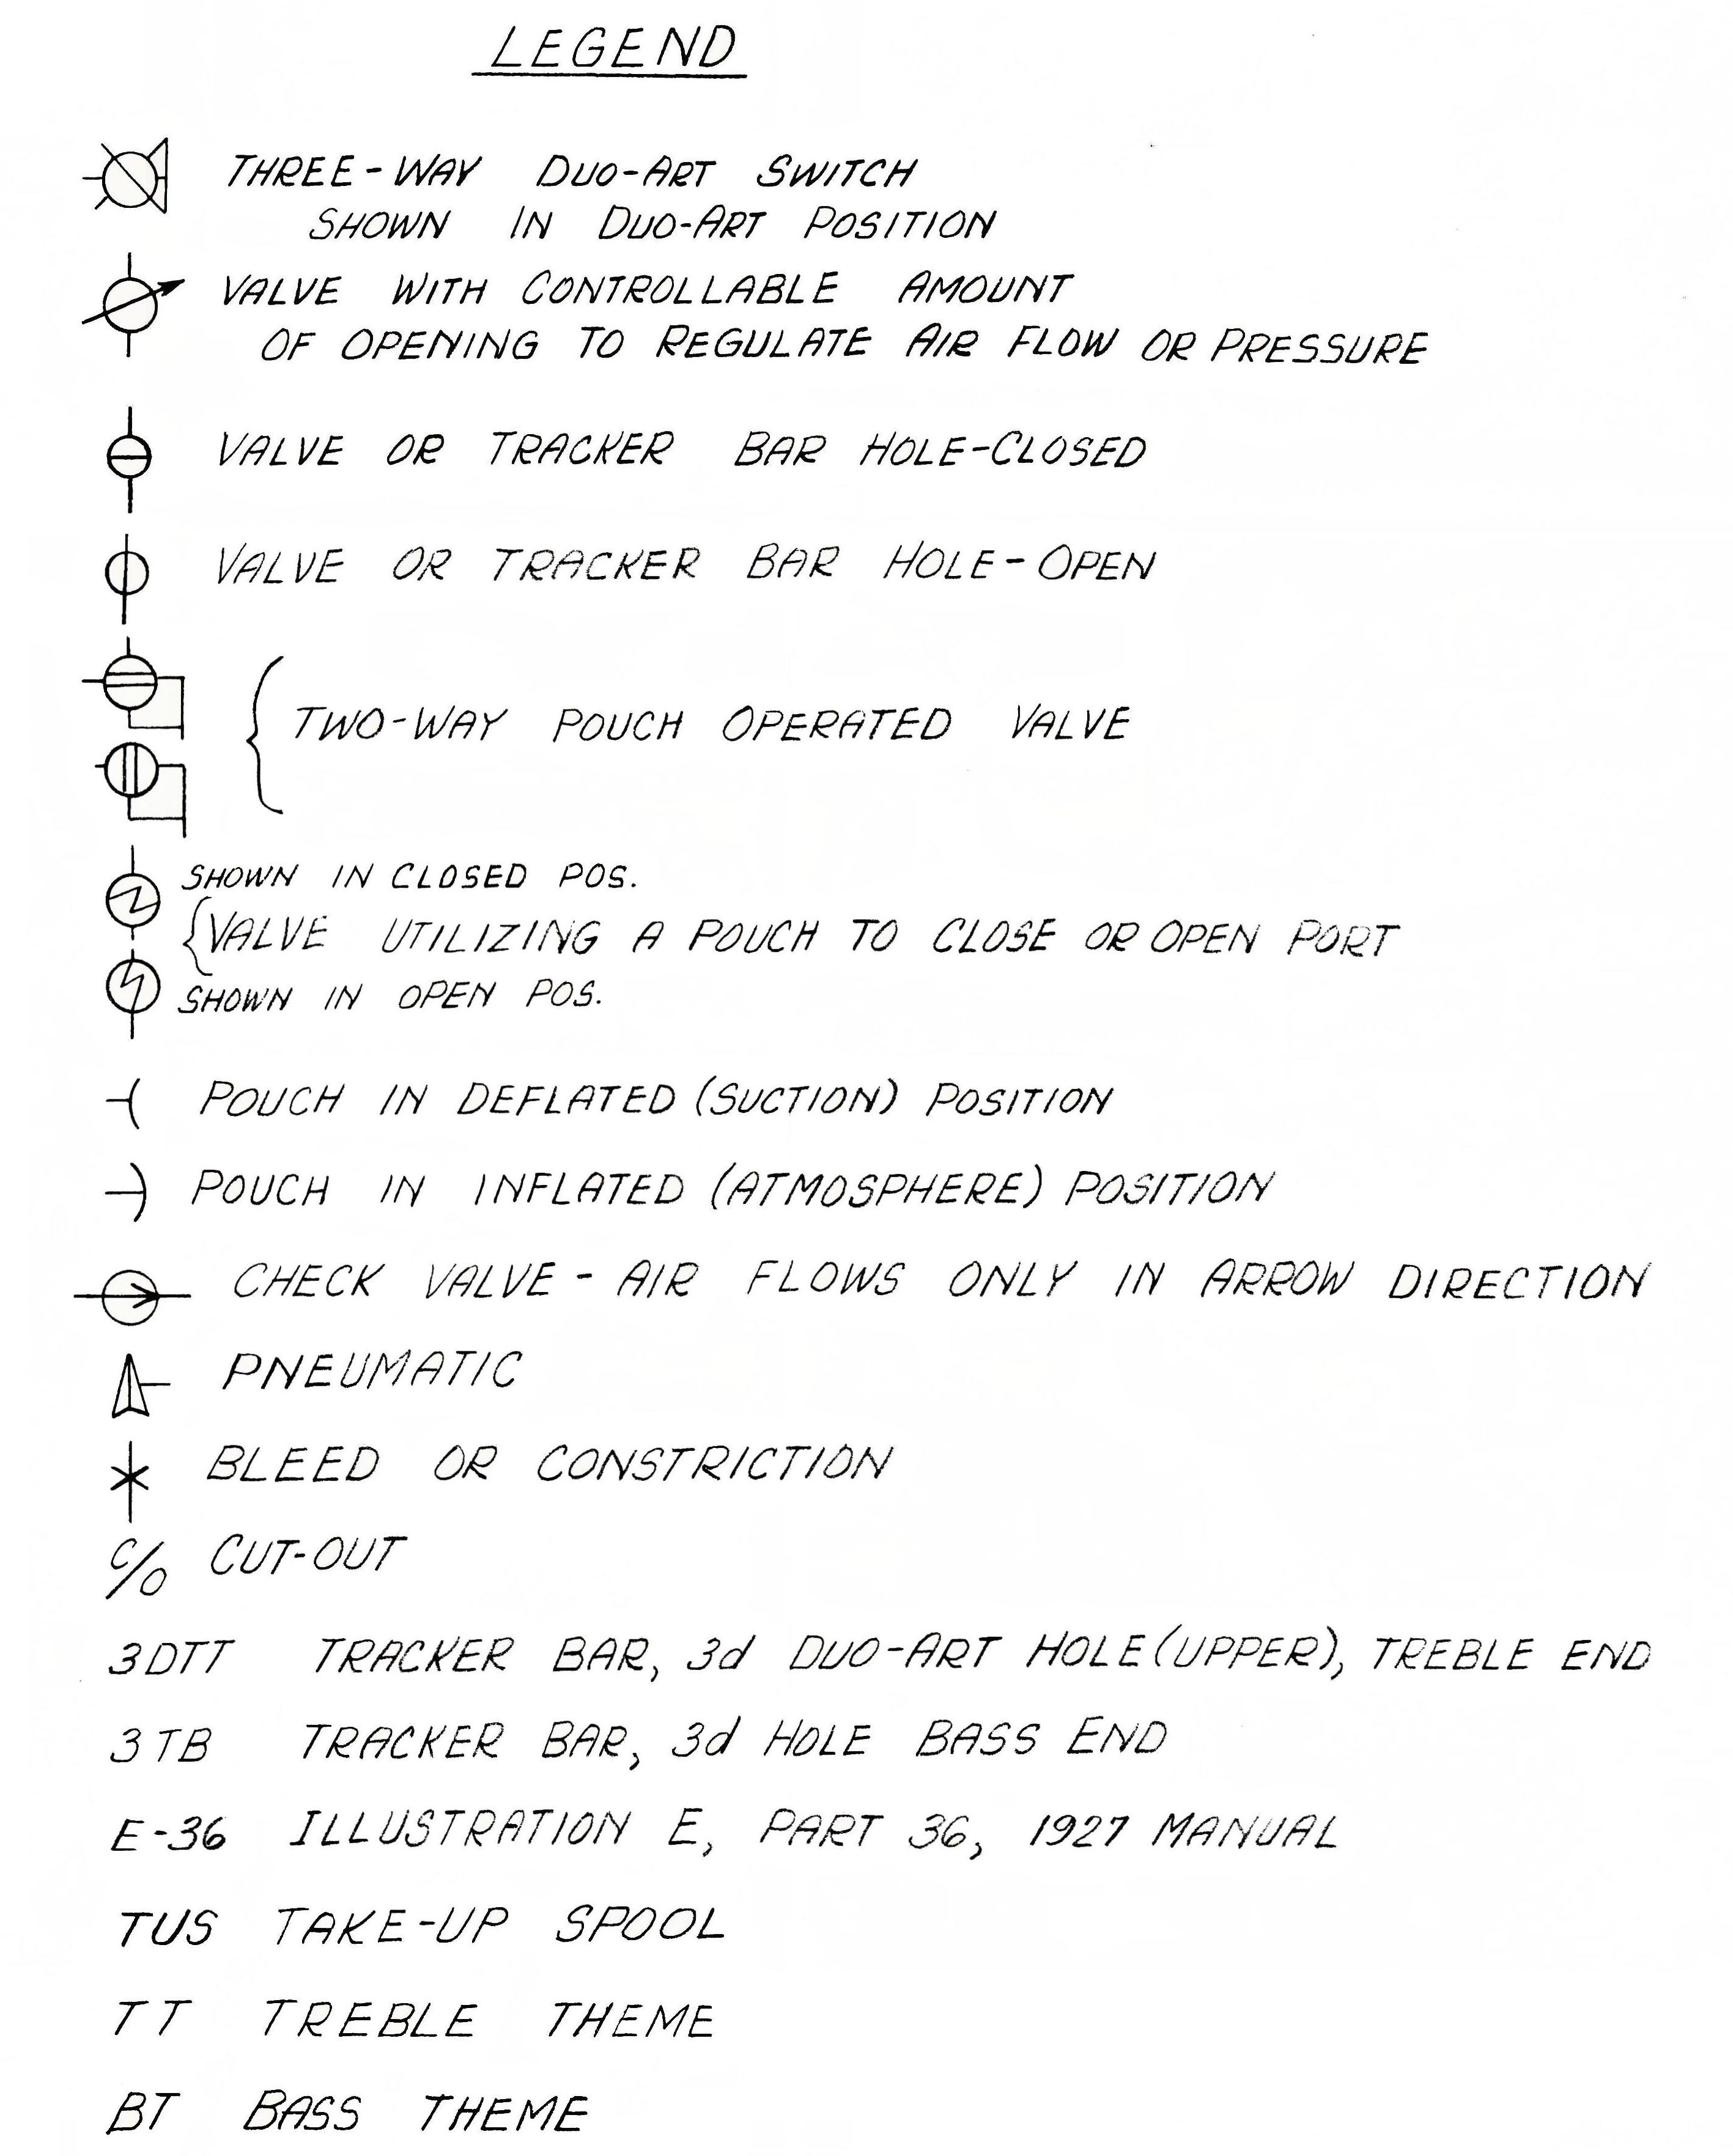 LEGEND
THREE-WAY DUO-ART SWITCH
SHOWN IN DUO-ART POSITION
VALVE WITH CONTROLLABLE AMOUNT
OF OPENING TO REGULATE AIR FLOW OR PRESSURE
VALVE OR TRACKER BAR HOLE-CLOSED
VALVE OR TRACKER BAR HOLE-OPEN
TWO-WAY POUCH OPERATED VALVE
SHOWN IN CLOSED POS.
VALVE UTILIZING A POUCH TO CLOSE OR OPEN PORT
SHOWN IN OPEN POS.
POUCH IN DEFLATED (SUCTION) POSITION
POUCH IN INFLATED (ATMOSPHERE) POSITION
CHECK VALVE - AIR FLOWS ONLY IN ARROW DIRECTION
PNEUMATIC
BLEED OR CONSTRICTION
C/O CUT-OUT
3DTT TRACKER BAR, 3d DUO-ART HOLE (UPPER), TREBLE END
3TB TRACKER BAR, 3d HOLE BASS END
E-36 ILLUSTRATION E, PART 36, 1927 MANUAL
TUS TAKE-UP SPOOL
TT TREBLE THEME
BT BASS THEME